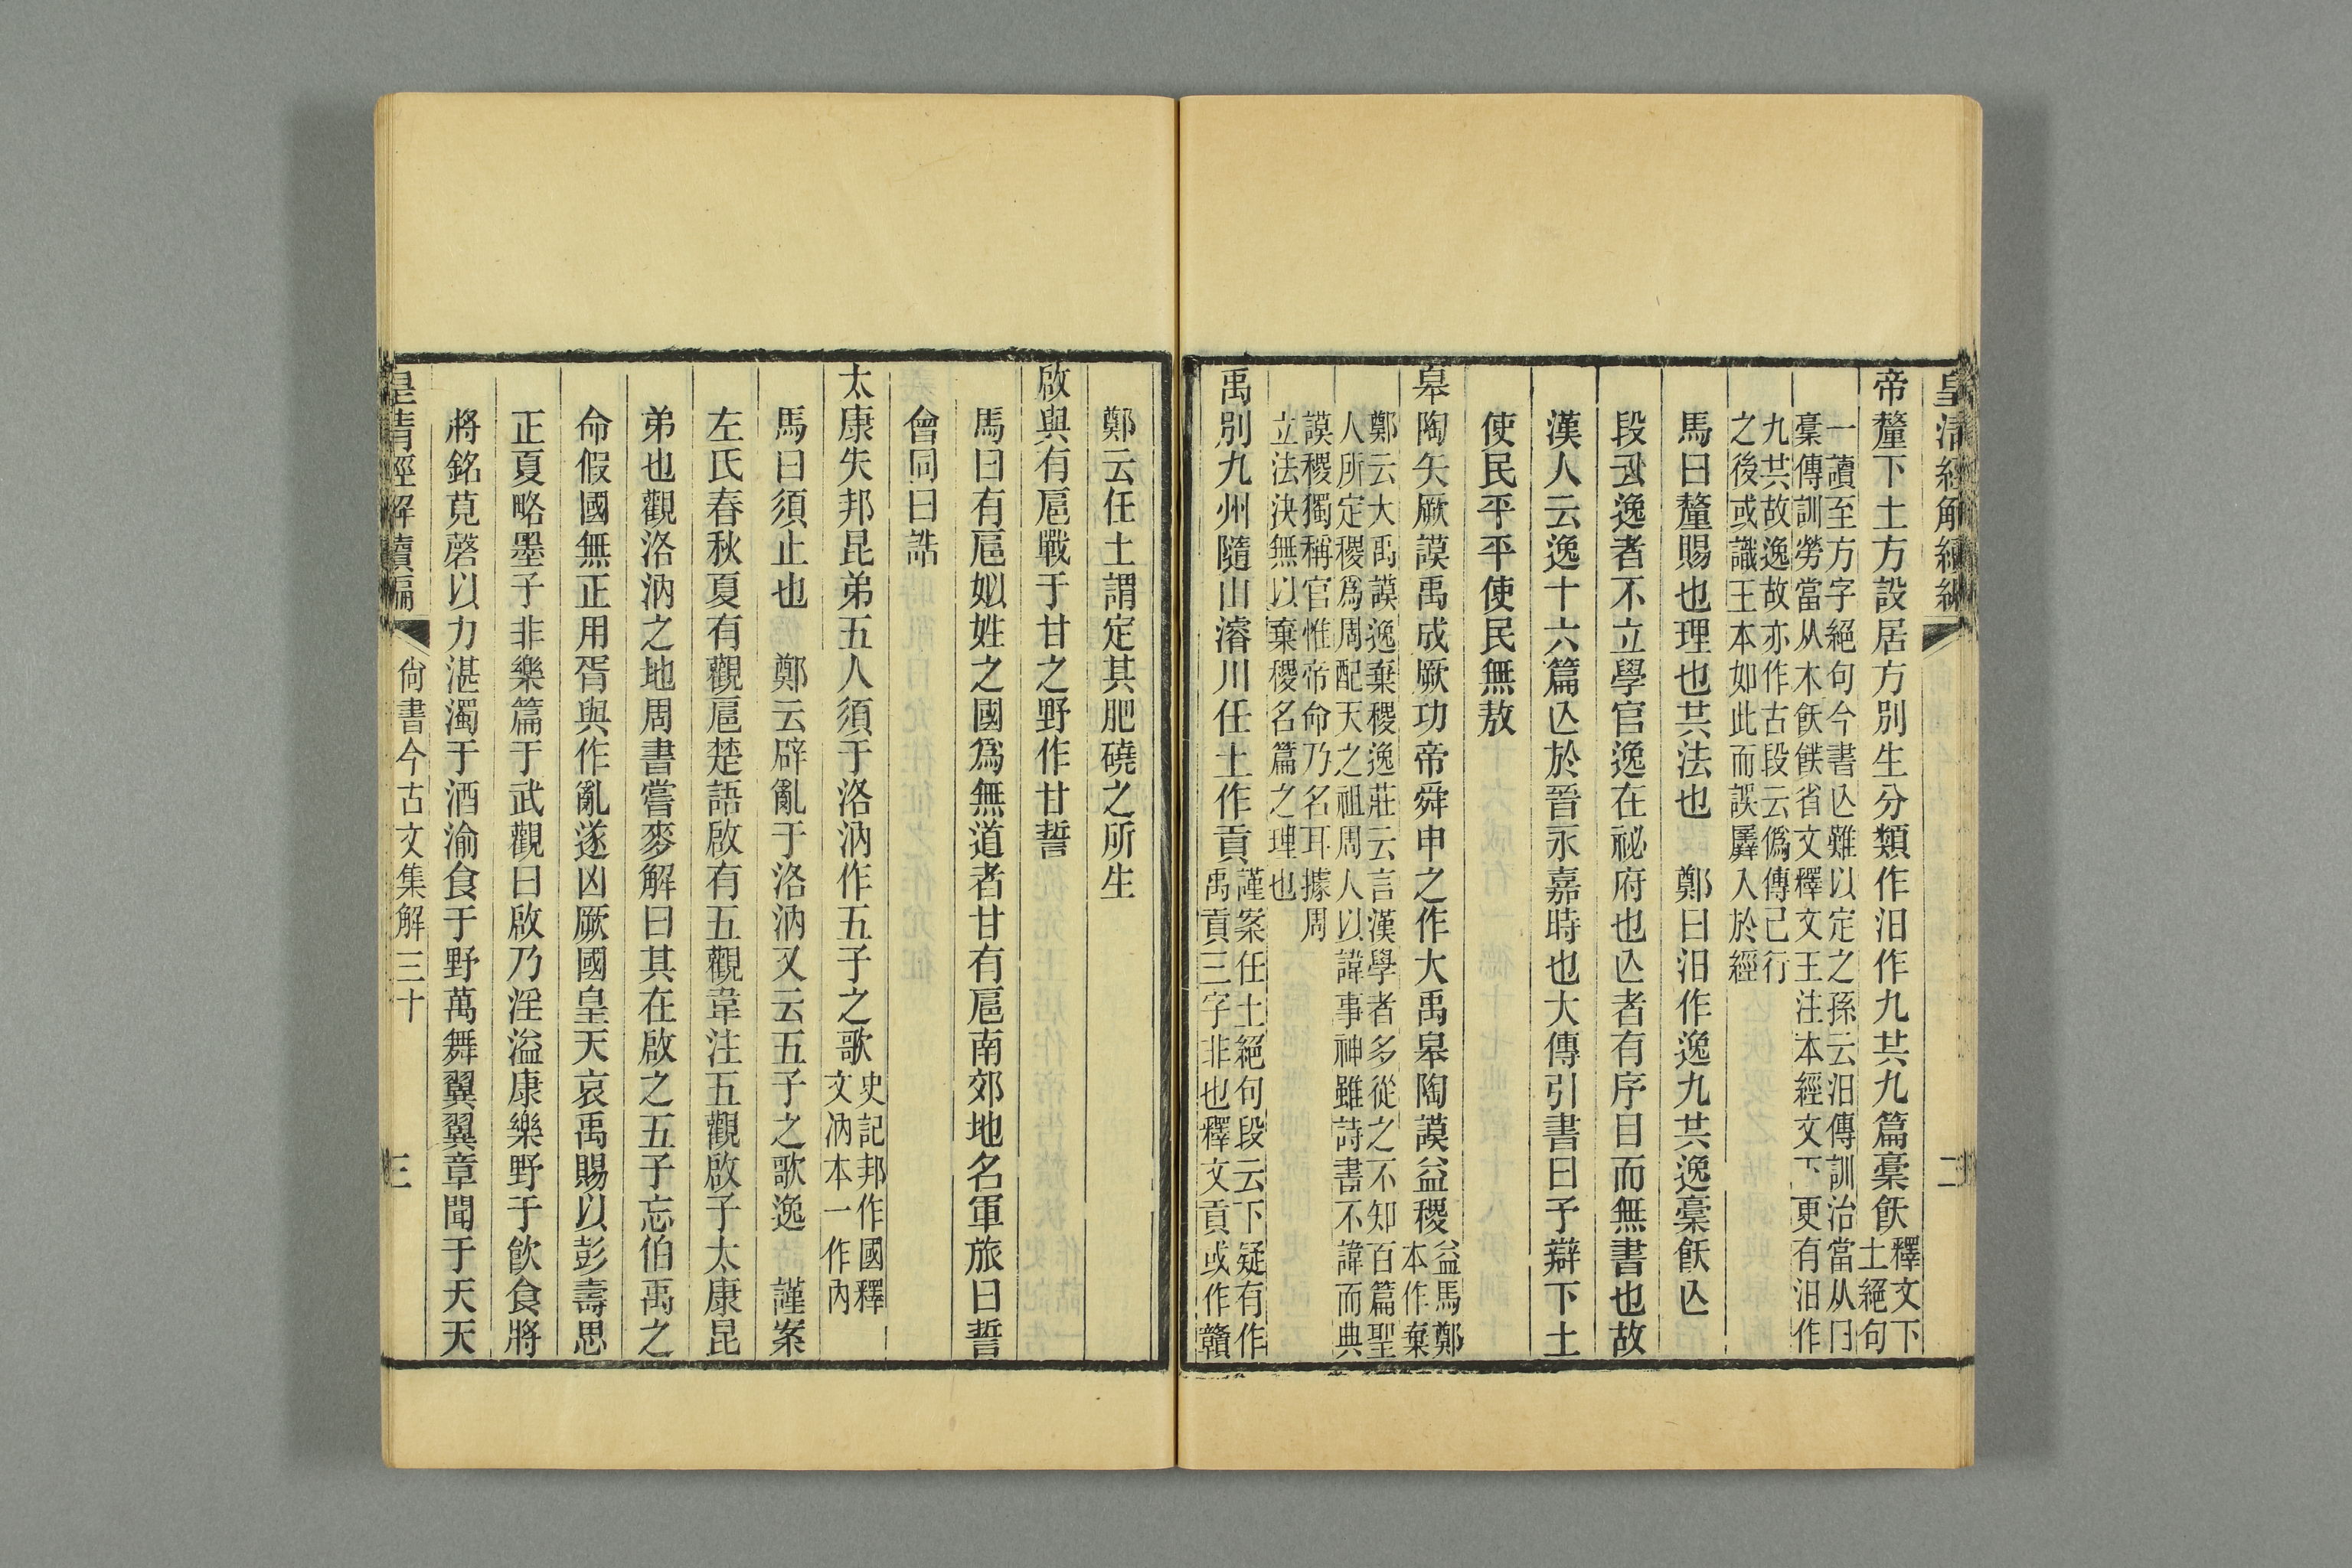 皇清經解續編 二
帝釐下土方設居方別生分類作汨作九共九篇槀飫釋文下
土絕句
一讀至方字絕句今書亾難以定之孫云汨傳訓治當从冃
槀傳訓勞當从木飫餸省文釋文王注本經文下更有汨作
九共故逸故亦作古段云僞傳已行
之後或識王本如此而誤羼入於經
馬曰釐賜也理也共法也 鄭曰汨作逸九共逸槀飫亾
段云逸者不立學官逸在祕府也亾者有序目而無書也故
漢人云逸十六篇亾於晉永嘉時也大傳引書曰予辯下土
使民平平使民無敖
皋陶矢厥謨禹成厥功帝舜申之作大禹皋陶謨益稷益馬鄭
本作棄
鄭云大禹謨逸棄稷逸莊云言漢學者多從之不知百篇聖
人所定稷爲周配天之祖周人以諱事神雖詩書不諱而典
謨稷獨稱官惟帝命乃名耳據周
立法決無以棄稷名篇之理也
禹別九州隨山濬川任土作貢謹案任土絕句段云下疑有作
禹貢三字非也釋文貢或作贛
鄭云任土謂定其肥磽之所生
啟與有扈戰于甘之野作甘誓
馬曰有扈姒姓之國爲無道者甘有扈南郊地名軍旅曰誓
會同曰誥
太康失邦昆弟五人須于洛汭作五子之歌史記邦作國釋
文汭本一作內
馬曰須止也 鄭云辟亂于洛汭又云五子之歌逸 謹案
左氏春秋夏有觀扈楚語啟有五觀韋注五觀啟子太康昆
弟也觀洛汭之地周書嘗麥解曰其在啟之五子忘伯禹之
命假國無正用胥與作亂遂凶厥國皇天哀禹賜以彭壽思
正夏略墨子非樂篇于武觀曰啟乃淫溢康樂野于飮食將
將銘莧磬以力湛濁于酒渝食于野萬舞翼翼章聞于天天
皇清經解續編 尙書今古文集解三十 三